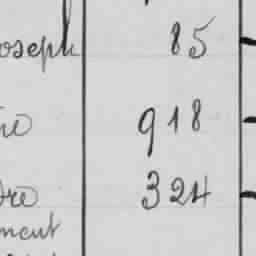 oseph 85
918
324
ment